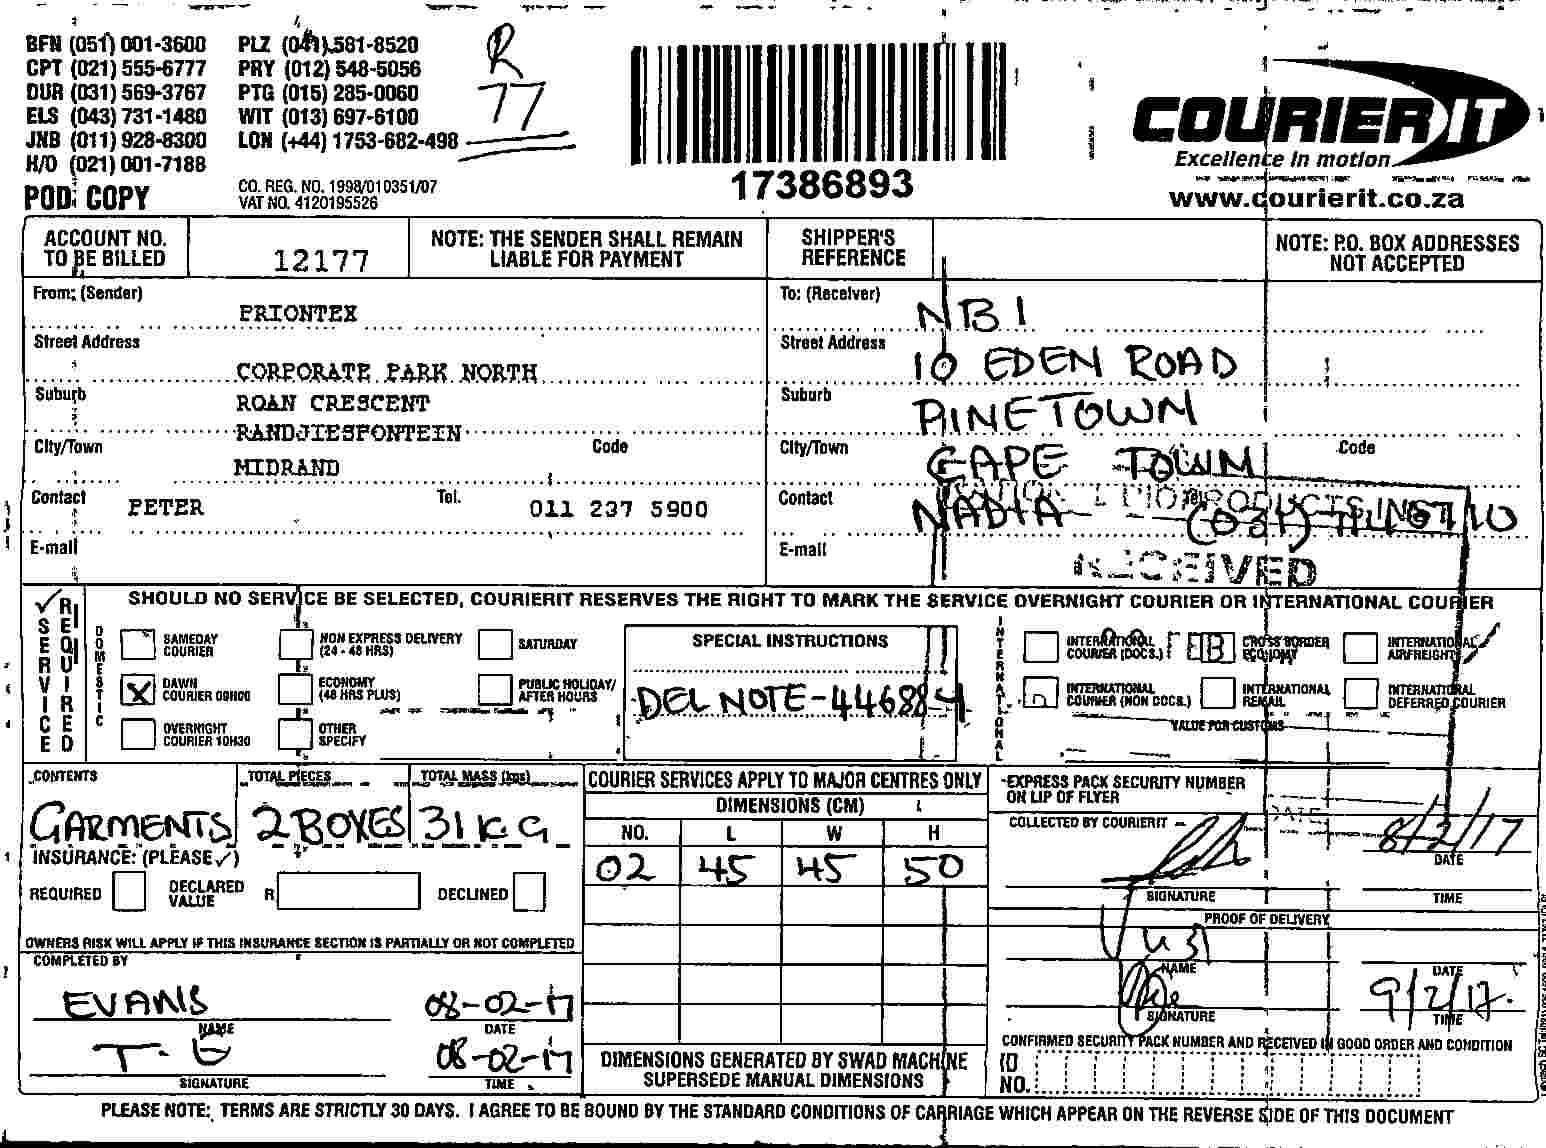 BFN (051) 001-3600 PLZ (041) 581-8520
CPT (021) 555-6777 PRY (012) 548-5056
DUR (031) 569-3767 PTG (015) 285-0060
ELS (043) 731-1480 WIT (013) 697-6100
JNB (011) 928-8300 LON (+44) 1753-682-498
H/O (021) 001-7188
R
77
POD COPY
CO. REG. NO. 1998/010351/07
VAT NO. 4120195526
17386893
COURIER IT
Excellence in motion
www.courierit.co.za
ACCOUNT NO. TO BE BILLED
12177
NOTE: THE SENDER SHALL REMAIN LIABLE FOR PAYMENT
SHIPPER'S REFERENCE
NOTE: P.O. BOX ADDRESSES NOT ACCEPTED
From: (Sender)
PRIONTEX
Street Address
CORPORATE PARK NORTH
Suburb
ROAN CRESCENT
RANDJIESFONTEIN
City/Town
Code
MIDRAND
Contact
PETER
Tel.
011 237 5900
E-mail
To: (Receiver)
NBI
Street Address
10 EDEN ROAD
Suburb
PINETOWN
City/Town
CAPE TOWN
Code
Contact
NADIA (031)
PRODUCTS INST
E-mail
RECEIVED
✓ SERVICE REQUIRED
SHOULD NO SERVICE BE SELECTED, COURIERIT RESERVES THE RIGHT TO MARK THE SERVICE OVERNIGHT COURIER OR INTERNATIONAL COURIER
DOMESTIC
SAMEDAY COURIER
NON EXPRESS DELIVERY (24 - 48 HRS)
SATURDAY
X DAWN COURIER 09H00
ECONOMY (48 HRS PLUS)
PUBLIC HOLIDAY/ AFTER HOURS
OVERNIGHT COURIER 10H30
OTHER SPECIFY
SPECIAL INSTRUCTIONS
DEL NOTE-446884
INTERNATIONAL
INTERNATIONAL COURIER (DOCS.)
CROSS BORDER ECONOMY
INTERNATIONAL AIRFREIGHT
INTERNATIONAL COURIER (NON DOCS.)
INTERNATIONAL REMAIL
INTERNATIONAL DEFERRED COURIER
FEB
VALUE FOR CUSTOMS
CONTENTS
GARMENTS
TOTAL PIECES
2 BOXES
TOTAL MASS (kgs)
31 KG
INSURANCE: (PLEASE ✓)
REQUIRED
DECLARED VALUE
R
DECLINED
OWNERS RISK WILL APPLY IF THIS INSURANCE SECTION IS PARTIALLY OR NOT COMPLETED
COMPLETED BY
EVANS
NAME
08-02-17
DATE
T. E
SIGNATURE
08-02-17
TIME
COURIER SERVICES APPLY TO MAJOR CENTRES ONLY
DIMENSIONS (CM)
NO. L W H
02 45 45 50
DIMENSIONS GENERATED BY SWAD MACHINE SUPERSEDE MANUAL DIMENSIONS
EXPRESS PACK SECURITY NUMBER ON LIP OF FLYER
DATE
COLLECTED BY COURIERIT
8/2/17
DATE
SIGNATURE
TIME
PROOF OF DELIVERY
NAME
DATE
9/2/17.
SIGNATURE
TIME
CONFIRMED SECURITY PACK NUMBER AND RECEIVED IN GOOD ORDER AND CONDITION
ID NO.
PLEASE NOTE: TERMS ARE STRICTLY 30 DAYS. I AGREE TO BE BOUND BY THE STANDARD CONDITIONS OF CARRIAGE WHICH APPEAR ON THE REVERSE SIDE OF THIS DOCUMENT